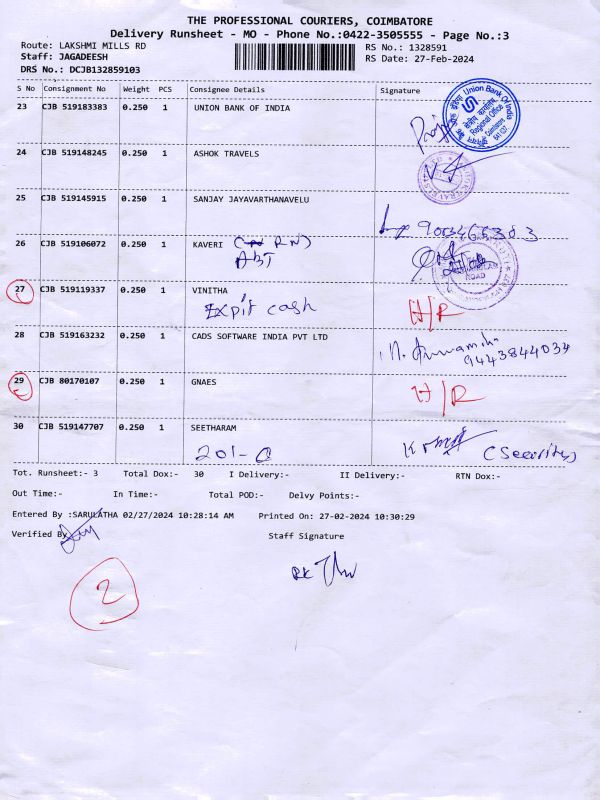 THE PROFESSIONAL COURIERS, COIMBATORE
Delivery Runsheet - MO - Phone No.:0422-3505555 - Page No.:3
Route: LAKSHMI MILLS RD RS No.: 1328591
Staff: JAGADEESH RS Date: 27-Feb-2024
DRS No.: DCJB132859103
S No Consignment No Weight PCS Consignee Details Signature
23 CJB 519183383 0.250 1 UNION BANK OF INDIA
Union Bank Of India
Regional Office
24 CJB 519148245 0.250 1 ASHOK TRAVELS
25 CJB 519145915 0.250 1 SANJAY JAYAVARTHANAVELU
26 CJB 519106072 0.250 1 KAVERI
ABT
ROAD
27 CJB 519119337 0.250 1 VINITHA
Expit cash H/R
28 CJB 519163232 0.250 1 CADS SOFTWARE INDIA PVT LTD
9443844034
29 CJB 80170107 0.250 1 GNAES H/R
30 CJB 519147707 0.250 1 SEETHARAM
201-C (Security)
Tot. Runsheet:- 3 Total Dox:- 30 I Delivery:- II Delivery:- RTN Dox:-
Out Time:- In Time:- Total POD:- Delvy Points:-
Entered By :SARULATHA 02/27/2024 10:28:14 AM Printed On: 27-02-2024 10:30:29
Verified By Staff Signature
2